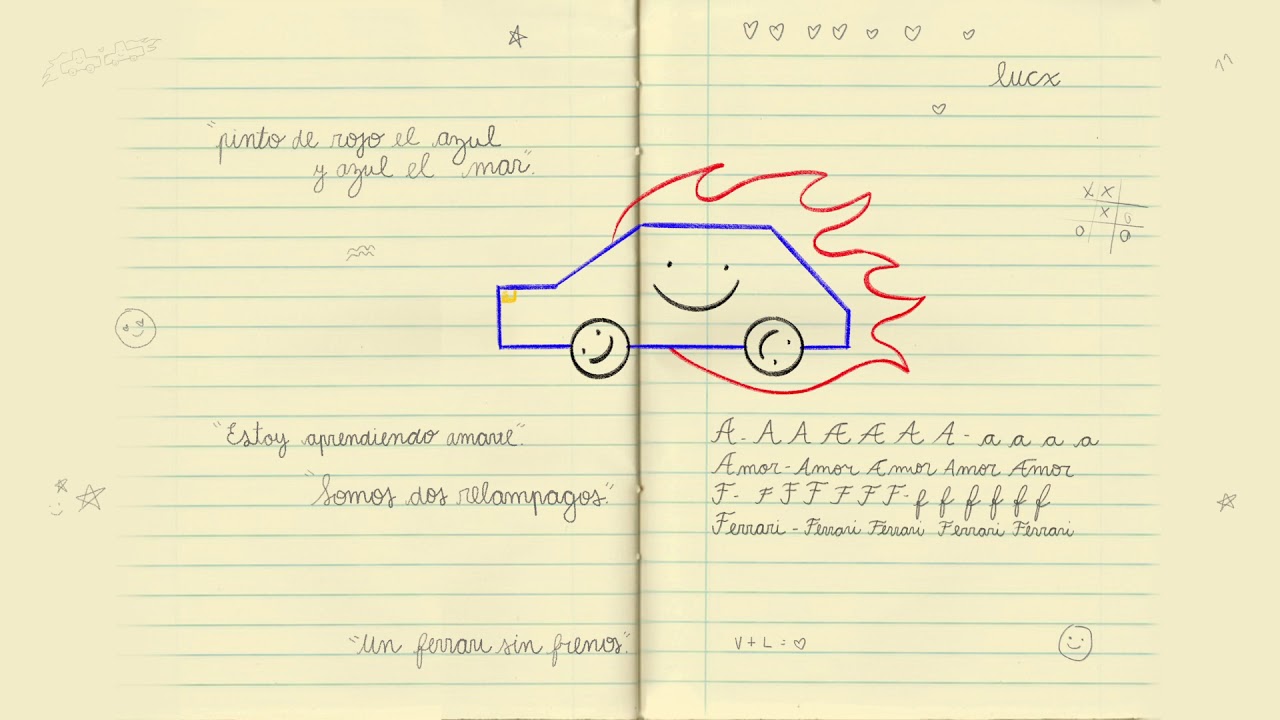 lucx
11
"pinto de rojo el azul
y azul el mar".
X X
X O
O O
"Estoy aprendiendo amarte".
"Somos dos relampagos."
A - A A Æ Æ A A - a a a a
Amor - Amor Æmor Amor Æmor
F - F F F F F F - f f f f f f
Ferrari - Ferrari Ferrari Ferrari Ferrari
"Un ferrari sin frenos".
V + L = ♡